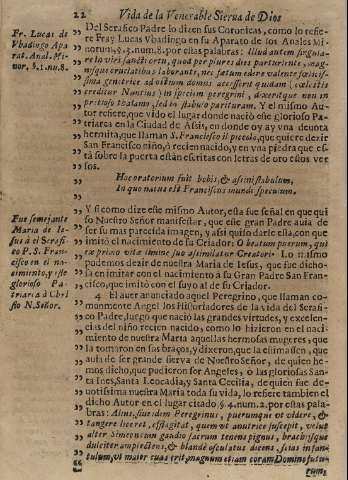 22 Vida de la Venerable Sierva de Dios
Fr. Lucas de
Vbadingo Apa
rat. Anal. Mi-
nor, §. 1. nu. 8.
Del Serafico Padre lo dizen sus Coronicas, como lo refie-
re Fray Lucas de Vbadingo en su Aparato de los Anales Mi
norum, §. 4. num. 8. por estas palabras: Illud autem singula-
re in viri sancti ortu, quod per plures dies parturiente, mag-
nisque cruciatibus laborante, nec fatum edere valente fœlicis-
sima genetrice ad ostium domus accesserit quidam (cœlestis
creditur Nuntius) in speciem peregrini, docueritque non in
pretioso thalamo, sed in stabulo parituram. Y el mismo Au-
tor refiere, que vido el lugar donde naciò este glorioso Pa-
triarca en la Ciudad de Assis, en donde oy ay vna deuota
hermita, que llaman S. Francisco il picolo, que quiere dezir
San Francisco niño, ò recien nacido, y en vna piedra que es-
tà sobre la puerta estàn escritas con letras de oro estos ver
sos.
Hoc oratorium fuit bobis, & asini stabulum,
In quo natus est Franciscus mundi speculum.
Fue semejante
Maria de Ie-
sus à el Serafi-
co P. S. Fran-
cisco en el na-
cimiento, y este
glorioso Pa-
triarca à Chri
sto N. Señor.
Y si como dize este mismo Autor, esta fue señal en que qui
so Nuestro Señor manifestar, que este gran Padre auia de
ser su mas parecida imagen, y assi quiso darle ella, con que
imitò el nacimiento de su Criador: O beatum puerum, qui
ex primo vitæ limine suo assimilatur Creatori. Lo mismo
podemos dezir de nuestra Maria de Iesus, que fue dicho-
sa en imitar con el nacimiento à su Gran Padre San Fran-
cisco, que imitò con el suyo al de su Criador.
4 El auer anunciado aquel Peregrino, que llaman co-
munmente Angel los Historiadores de la vida del Serafi-
co Padre, juzgo que naciò las grandes virtudes, y excelen-
cias del niño recien nacido, como lo hizieron en el naci-
miento de nuestra Maria aquellas hermosas mugeres, que
la tomaron en sus braços, y dixeron, que la estimassen, que
auia de ser grande sierva de Nuestro Señor, de quien he-
mos dicho, que pudieron ser Angeles, ò las gloriosas San-
ta Ines, Santa Leocadia, y Santa Cecilia, de quien fue de-
uotissima nuestra Maria toda su vida, lo refiere tambien el
dicho Autor en el lugar citado §. 4. num. 2. por estas pala-
bras: Alius, siue idem Peregrinus, puerumque vt videre, &
tangere liceret, efflagitat, quem vt à nutrice suscepit, velut
alter Simeonum gaudio sacrum tenens pignus, brachijsque
dulciter amplectens, & blandè osculatus dicens, scias infan-
tulum, vt maior euas erit, magnum etiam coram Domino futu-
rum;